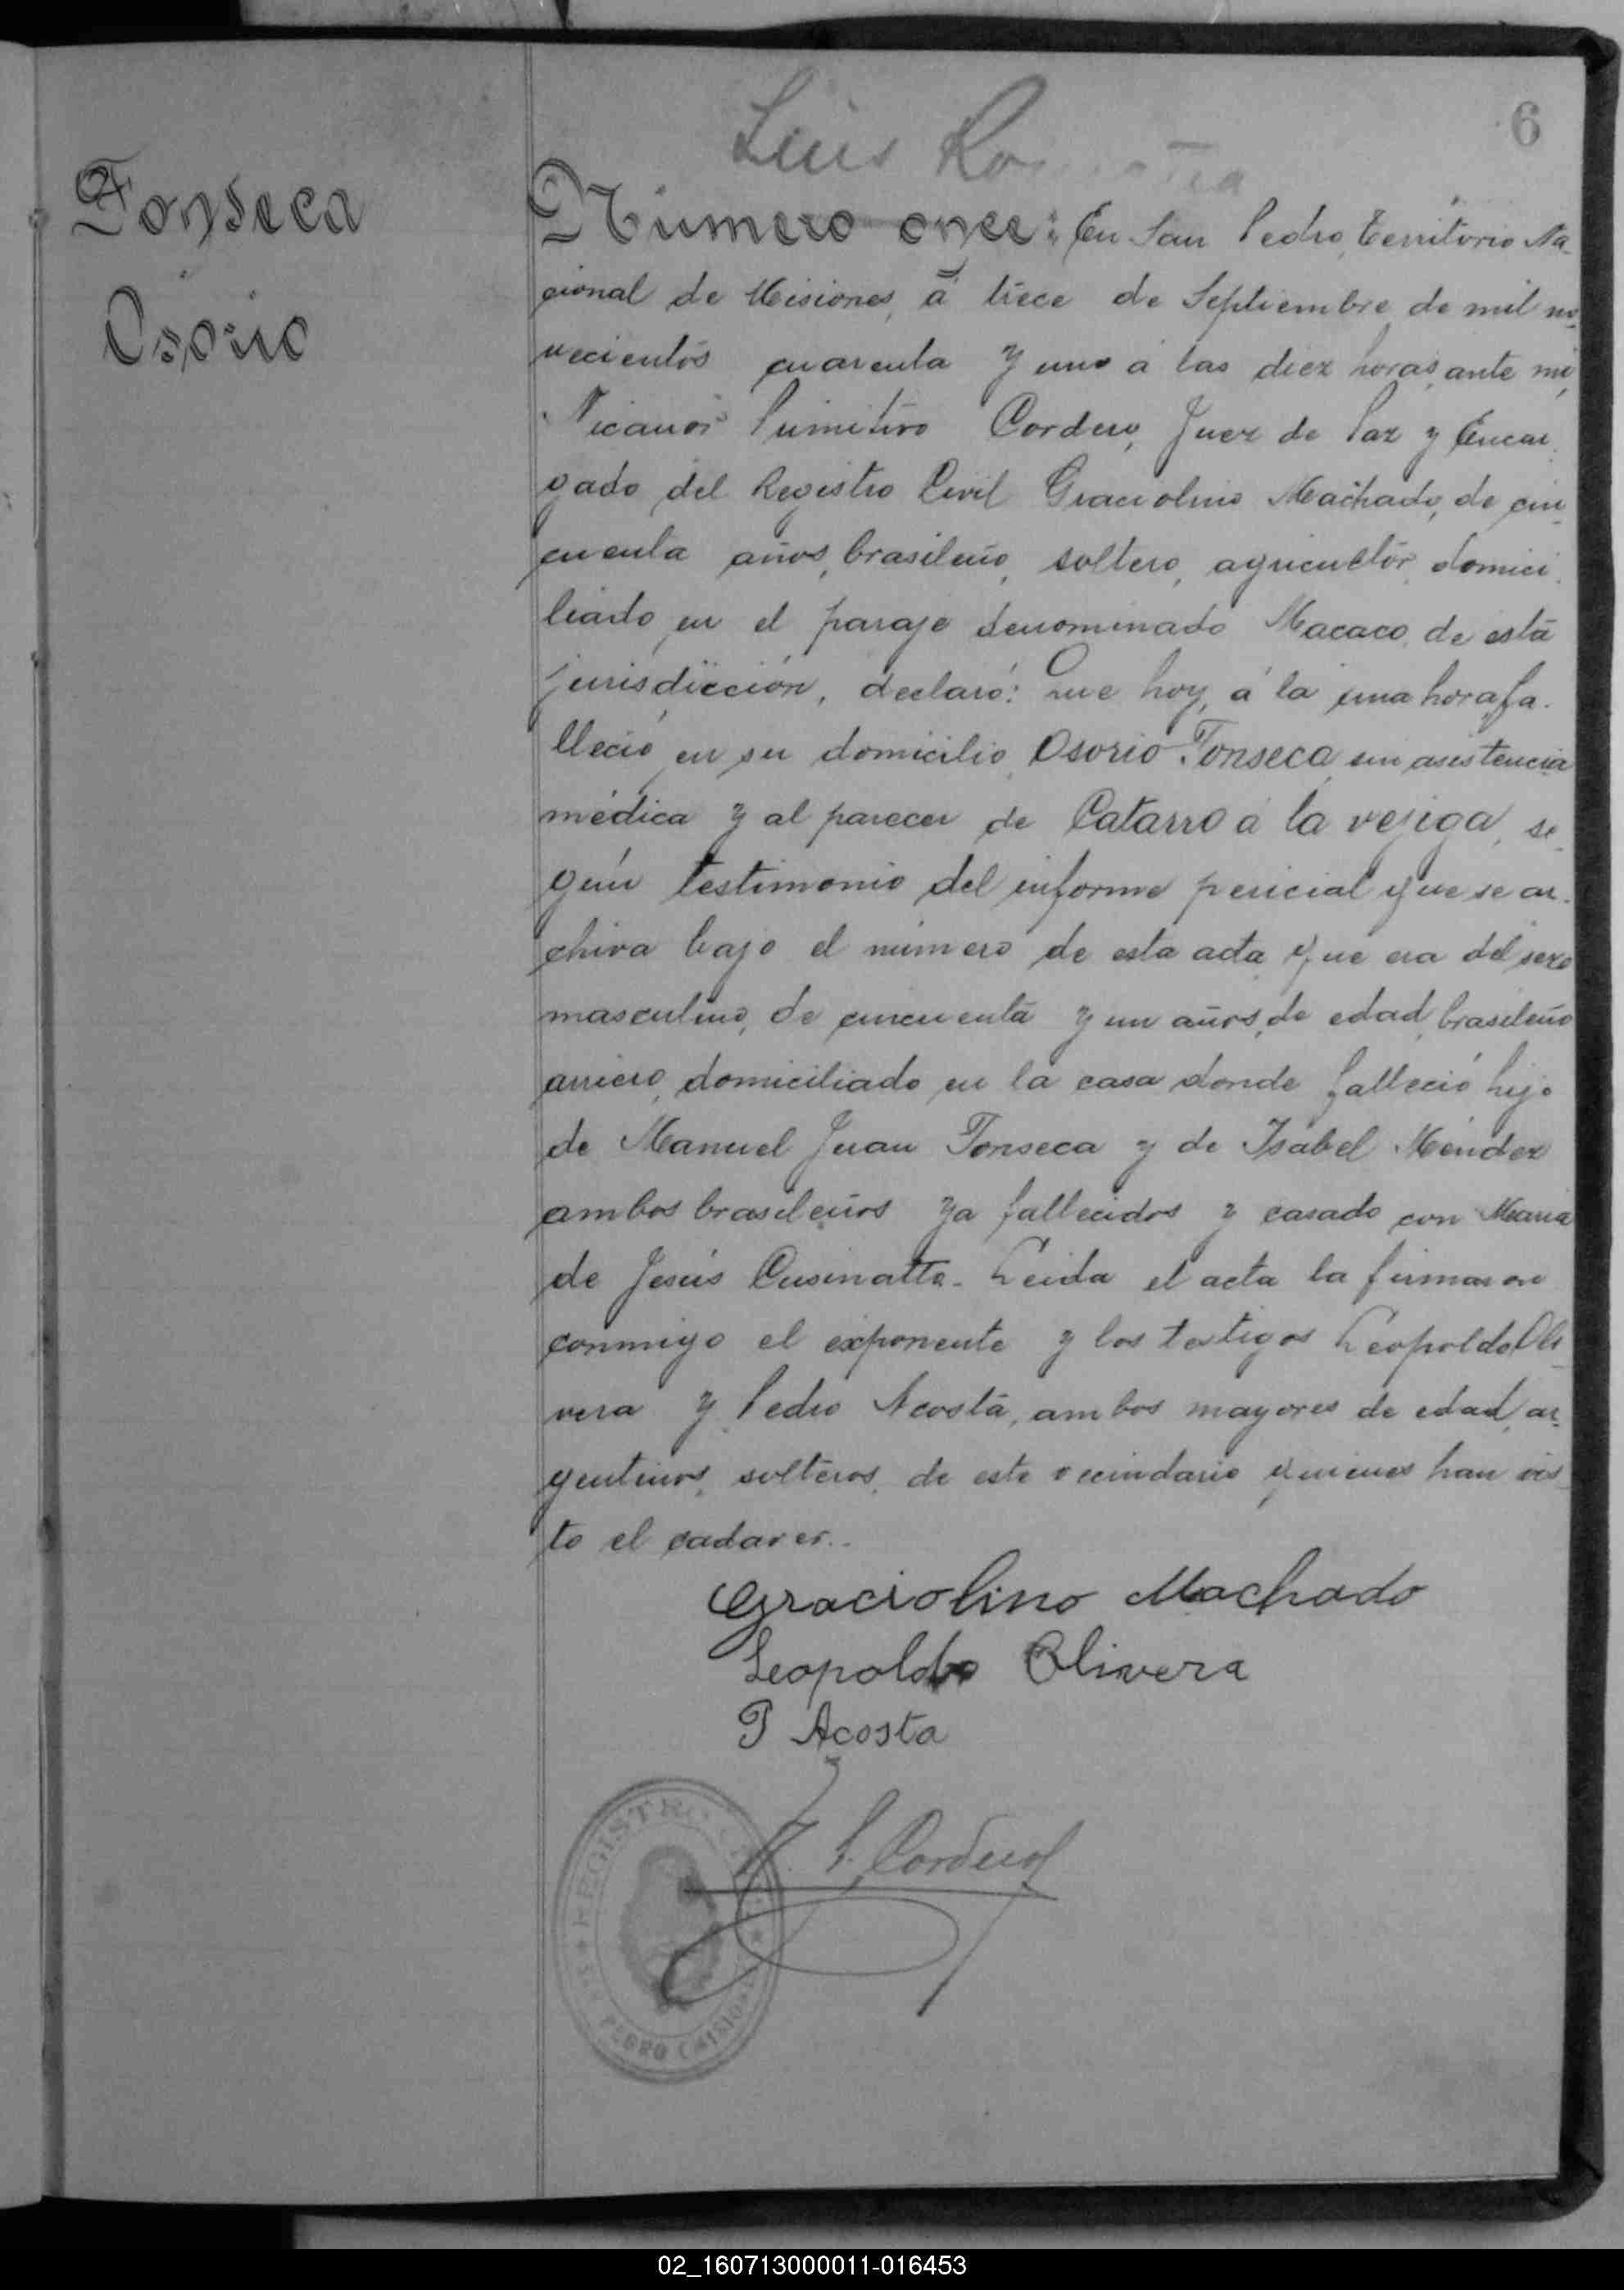 6
Luis
Fonseca
Osorio
Número once: En San Pedro, Territorio Na-
cional de Misiones, á trece de Septiembre de mil no-
vecientos cuarenta y uno á las diez horas, ante mi,
Nicanor Primitivo Cordero, Juez de Paz y Encar-
gado del Registro Civil Graciolino Machado, de cin-
cuenta años, brasileño, soltero, agricultor, domici-
liado en el paraje denominado Macaco, de esta
jurisdicción, declaró: Que hoy, á la una hora fa-
lleció en su domicilio, Osorio Fonseca, sin asistencia
médica y al parecer de Catarro a la vejiga, se-
gún testimonio del informe pericial que se ar-
chiva bajo el número de esta acta que era del sexo
masculino, de cincuenta y un años, de edad, brasileño
arriero, domiciliado en la casa donde falleció hijo
de Manuel Juan Fonseca y de Isabel Méndez
ambos brasileños ya fallecidos y casado con Maria
de Jesús Cusinatto - Leida el acta la firmaron
conmigo el exponente y los testigos Leopoldo Oli-
vera y Pedro Acosta, ambos mayores de edad, ar-
gentinos, solteros, de este vecindario quienes han vis-
to el cadaver..
Graciolino Machado
Leopoldo Olivera
P Acosta
N. P. Cordero
REGISTRO CIVIL
SAN PEDRO (MISIONES)
02_160713000011-016453